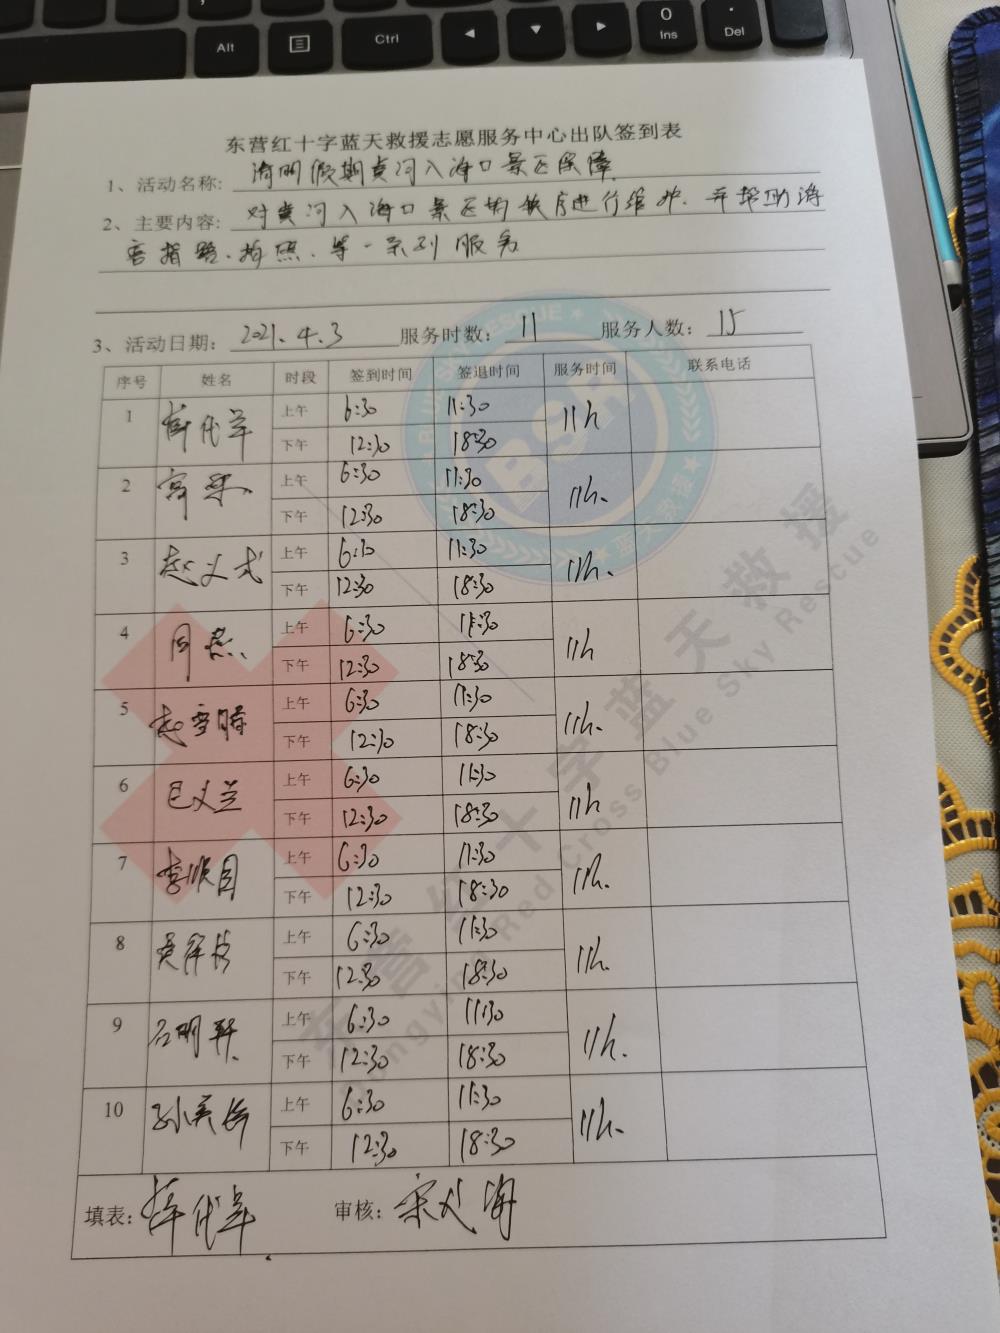 Alt
Ctrl
0
Ins
.
Del
东营红十字蓝天救援志愿服务中心出队签到表
1、活动名称: 清明假期黄河入海口景区保障
2、主要内容: 对黄河入海口景区的秩序进行维护. 并帮助游
客指路、拍照、等一系列服务
3、活动日期: 2021.4.3 服务时数: 11 服务人数: 15
序号 姓名 时段 签到时间 签退时间 服务时间 联系电话
1 薛代军 上午 6:30 11:30 11h
下午 12:30 18:30
2 上午 6:30 11:30 11h.
下午 12:30 18:30
3 赵义武 上午 6:30 11:30 11h.
下午 12:30 18:30
4 上午 6:30 11:30 11h
下午 12:30 18:30
5 赵雪晴 上午 6:30 11:30 11h.
下午 12:30 18:30
6 巴义兰 上午 6:30 11:30 11h
下午 12:30 18:30
7 上午 6:30 11:30 11h.
下午 12:30 18:30
8 上午 6:30 11:30 11h.
下午 12:30 18:30
9 石明轩 上午 6:30 11:30 11h.
下午 12:30 18:30
10 上午 6:30 11:30 11h.
下午 12:30 18:30
填表: 薛代军 审核:
BSR
BLUE SKY RESCUE
蓝天救援
东营红十字蓝天救援
Dongying Red Cross Blue Sky Rescue